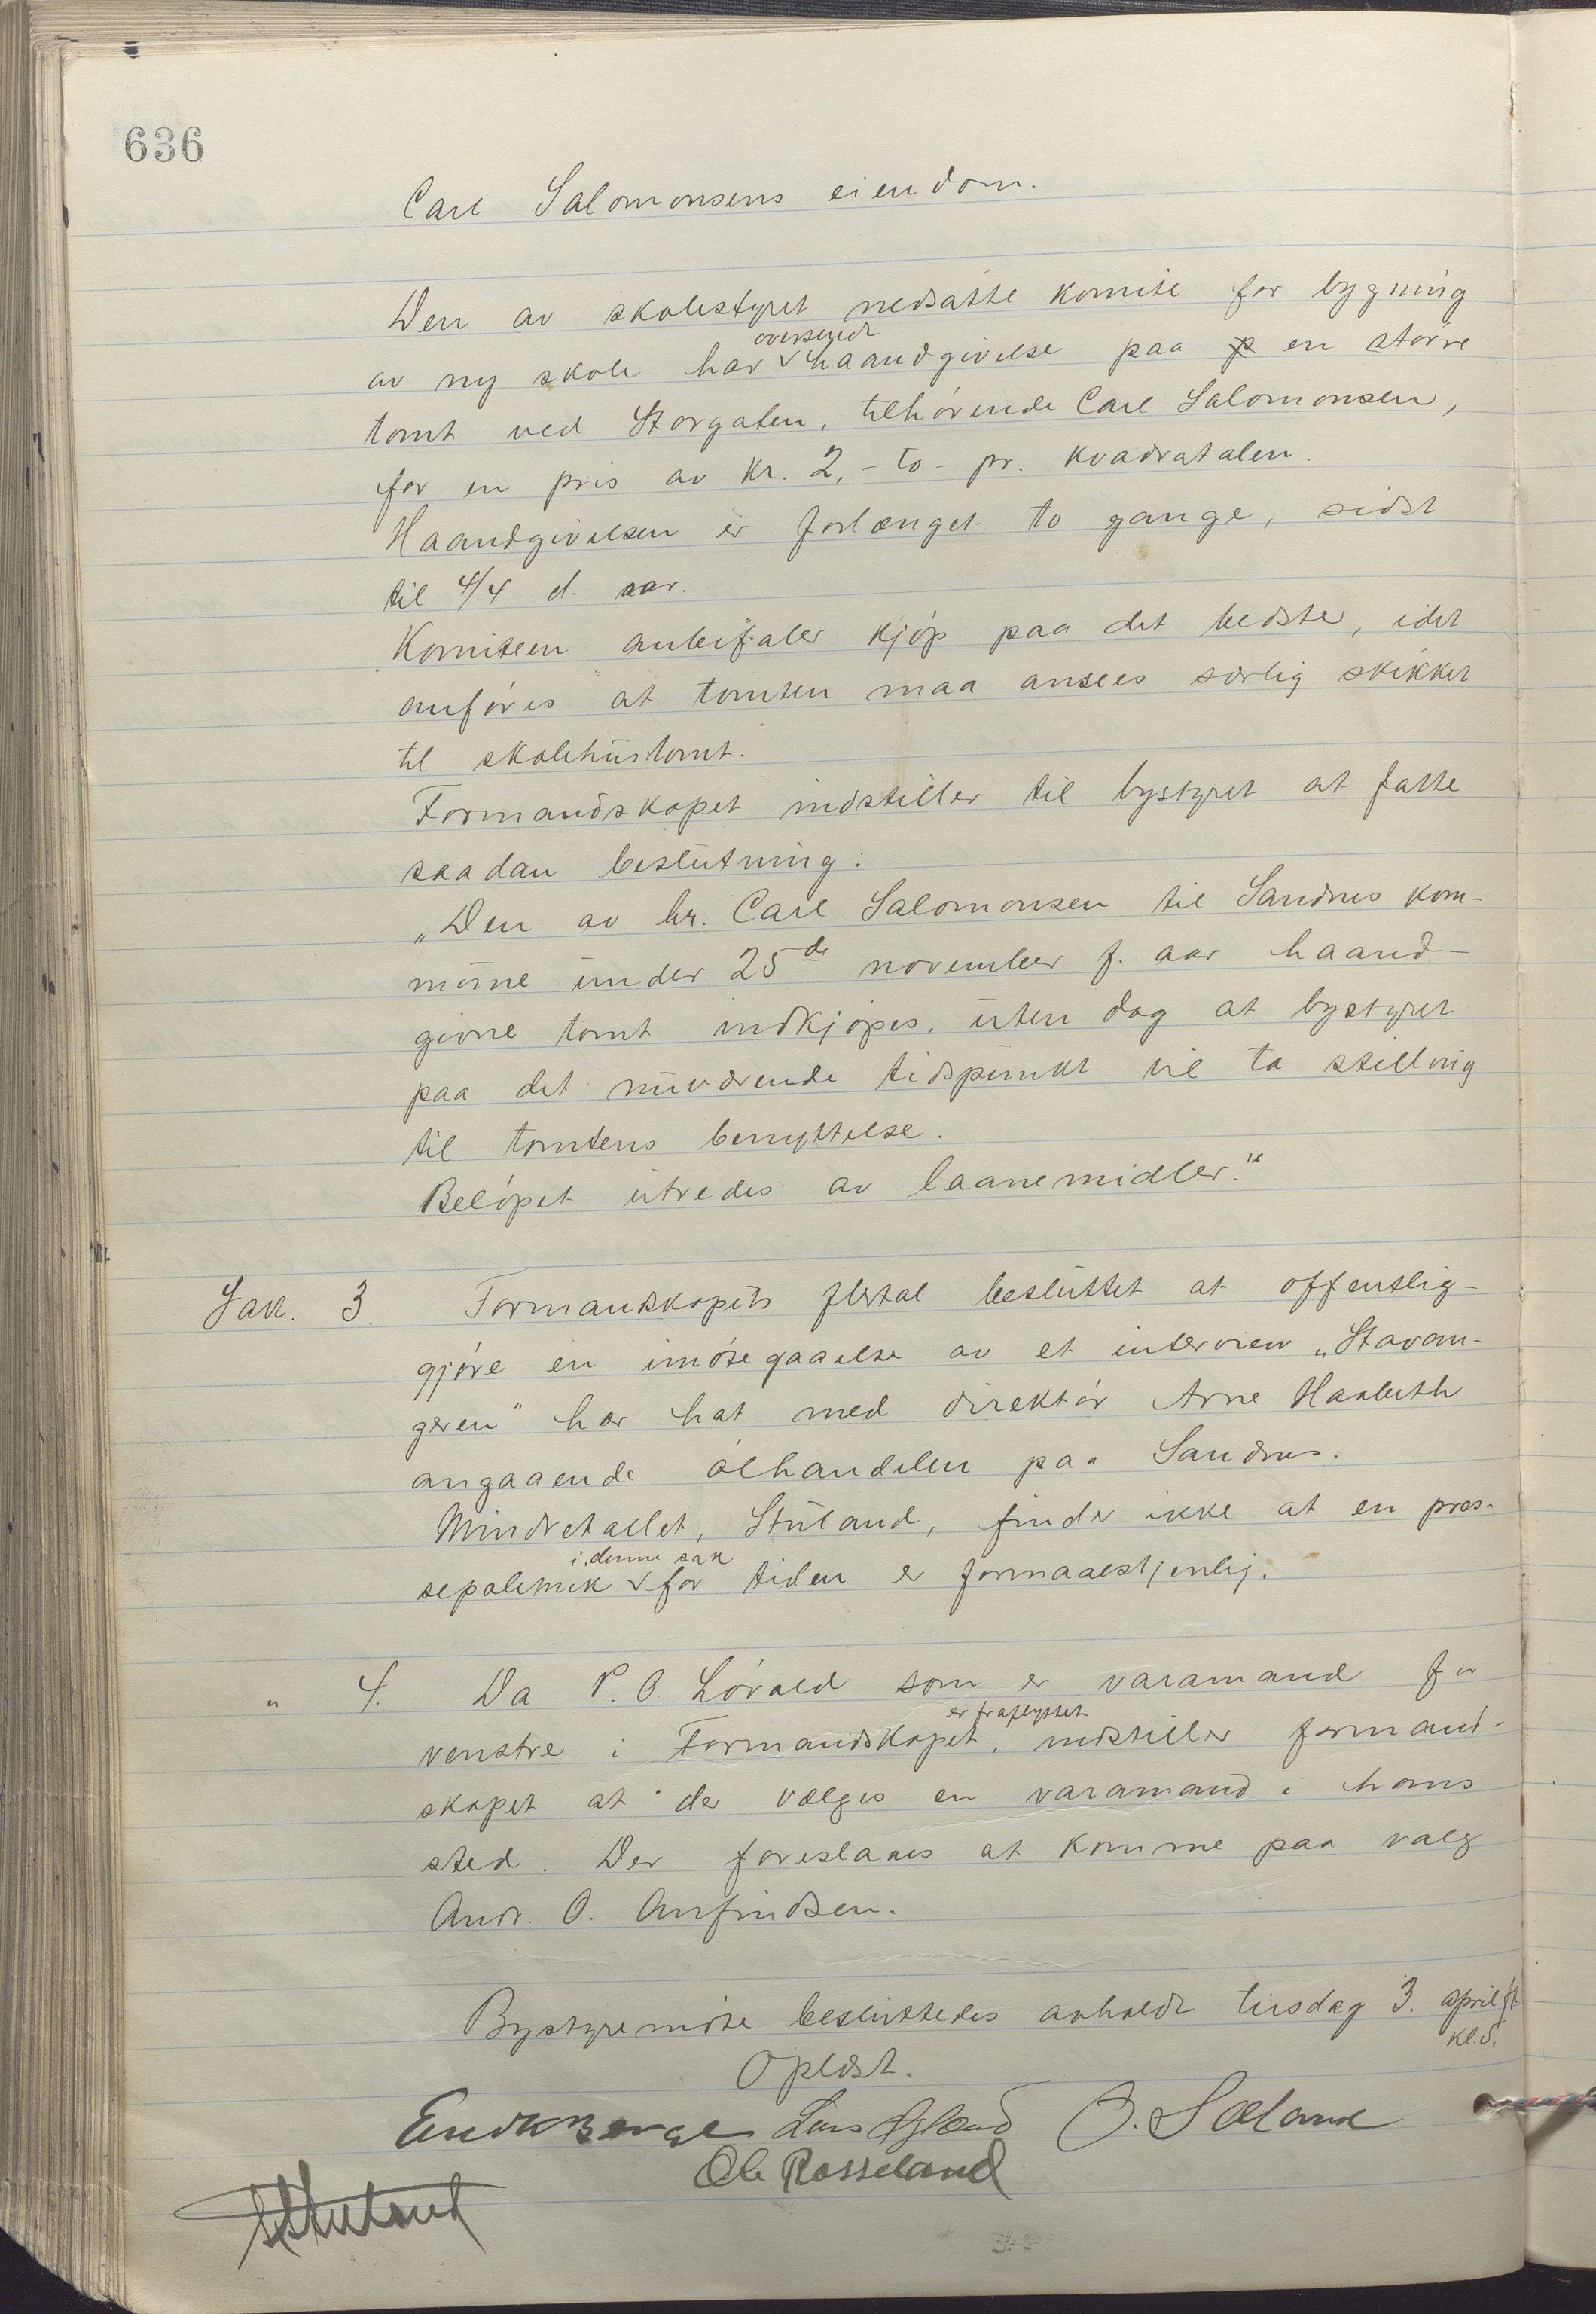 636
Carl Salomonsens eiendom.
Den av skolestyret nedsatte komite for bygning
oversendt
av ny skole har haandgivelse paa en større
tomt ved Storgaten, tilhørende Carl Salomonsen,
for en pris av kr. 2,- to - pr. kvadratalen.
Haandgivelsen er forlænget to gange, sidst
til 4/4 d. aar.
Komiteen anbefaler kjøp paa det bedste, idet
anføres at tomten maa ansees særlig skikket
til skolehustomt.
Formandskapet indstiller til bystyret at fatte
saadan beslutning:
„Den av hr. Carl Salomonsen til Sandnes kom-
mune under 25de november f. aar haand-
givne tomt indkjøpes, uten dog at bystyret
paa det nuværende tidspunkt vil ta stilling
til tomtens benyttelse.
Beløpet utredes av laanemidler."
Sak. 3. Formandskapets flertal besluttet at offentlig-
gjøre en imøtegaaelse av et interview „Stavan-
geren" har hat med direktør Arne Haabeth
angaaende ølhandelen paa Sandnes.
Mindretallet, Stuland, finder ikke at en pres-
i denne sak
sepolemik for tiden er formaalstjenlig.
" 4. Da P. O. Lövold som er varamand for
er fraflyttet
venstre i Formandskapet, indstiller formand-
skapet at der vælges en varamand i hans
sted. Der foreslaaes at komme paa valg
Andr. O. Anfindsen.
Bystyremøte besluttedes avholdt tirsdag 3. april
kl. 5.
Oplæst.
Lars O. Sæland
Ole Rosseland
Stuland